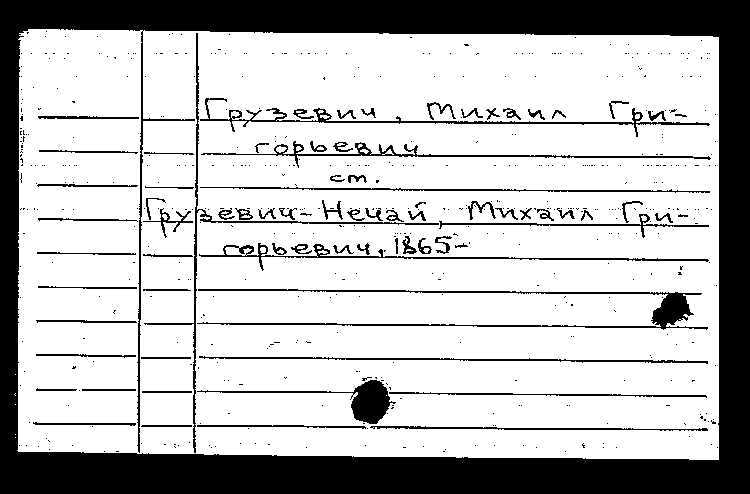 Грузевич, Михаил Гри-
горьевич
ст.
Грузевич-Нечай, Михаил Гри-
горьевич, 1865-